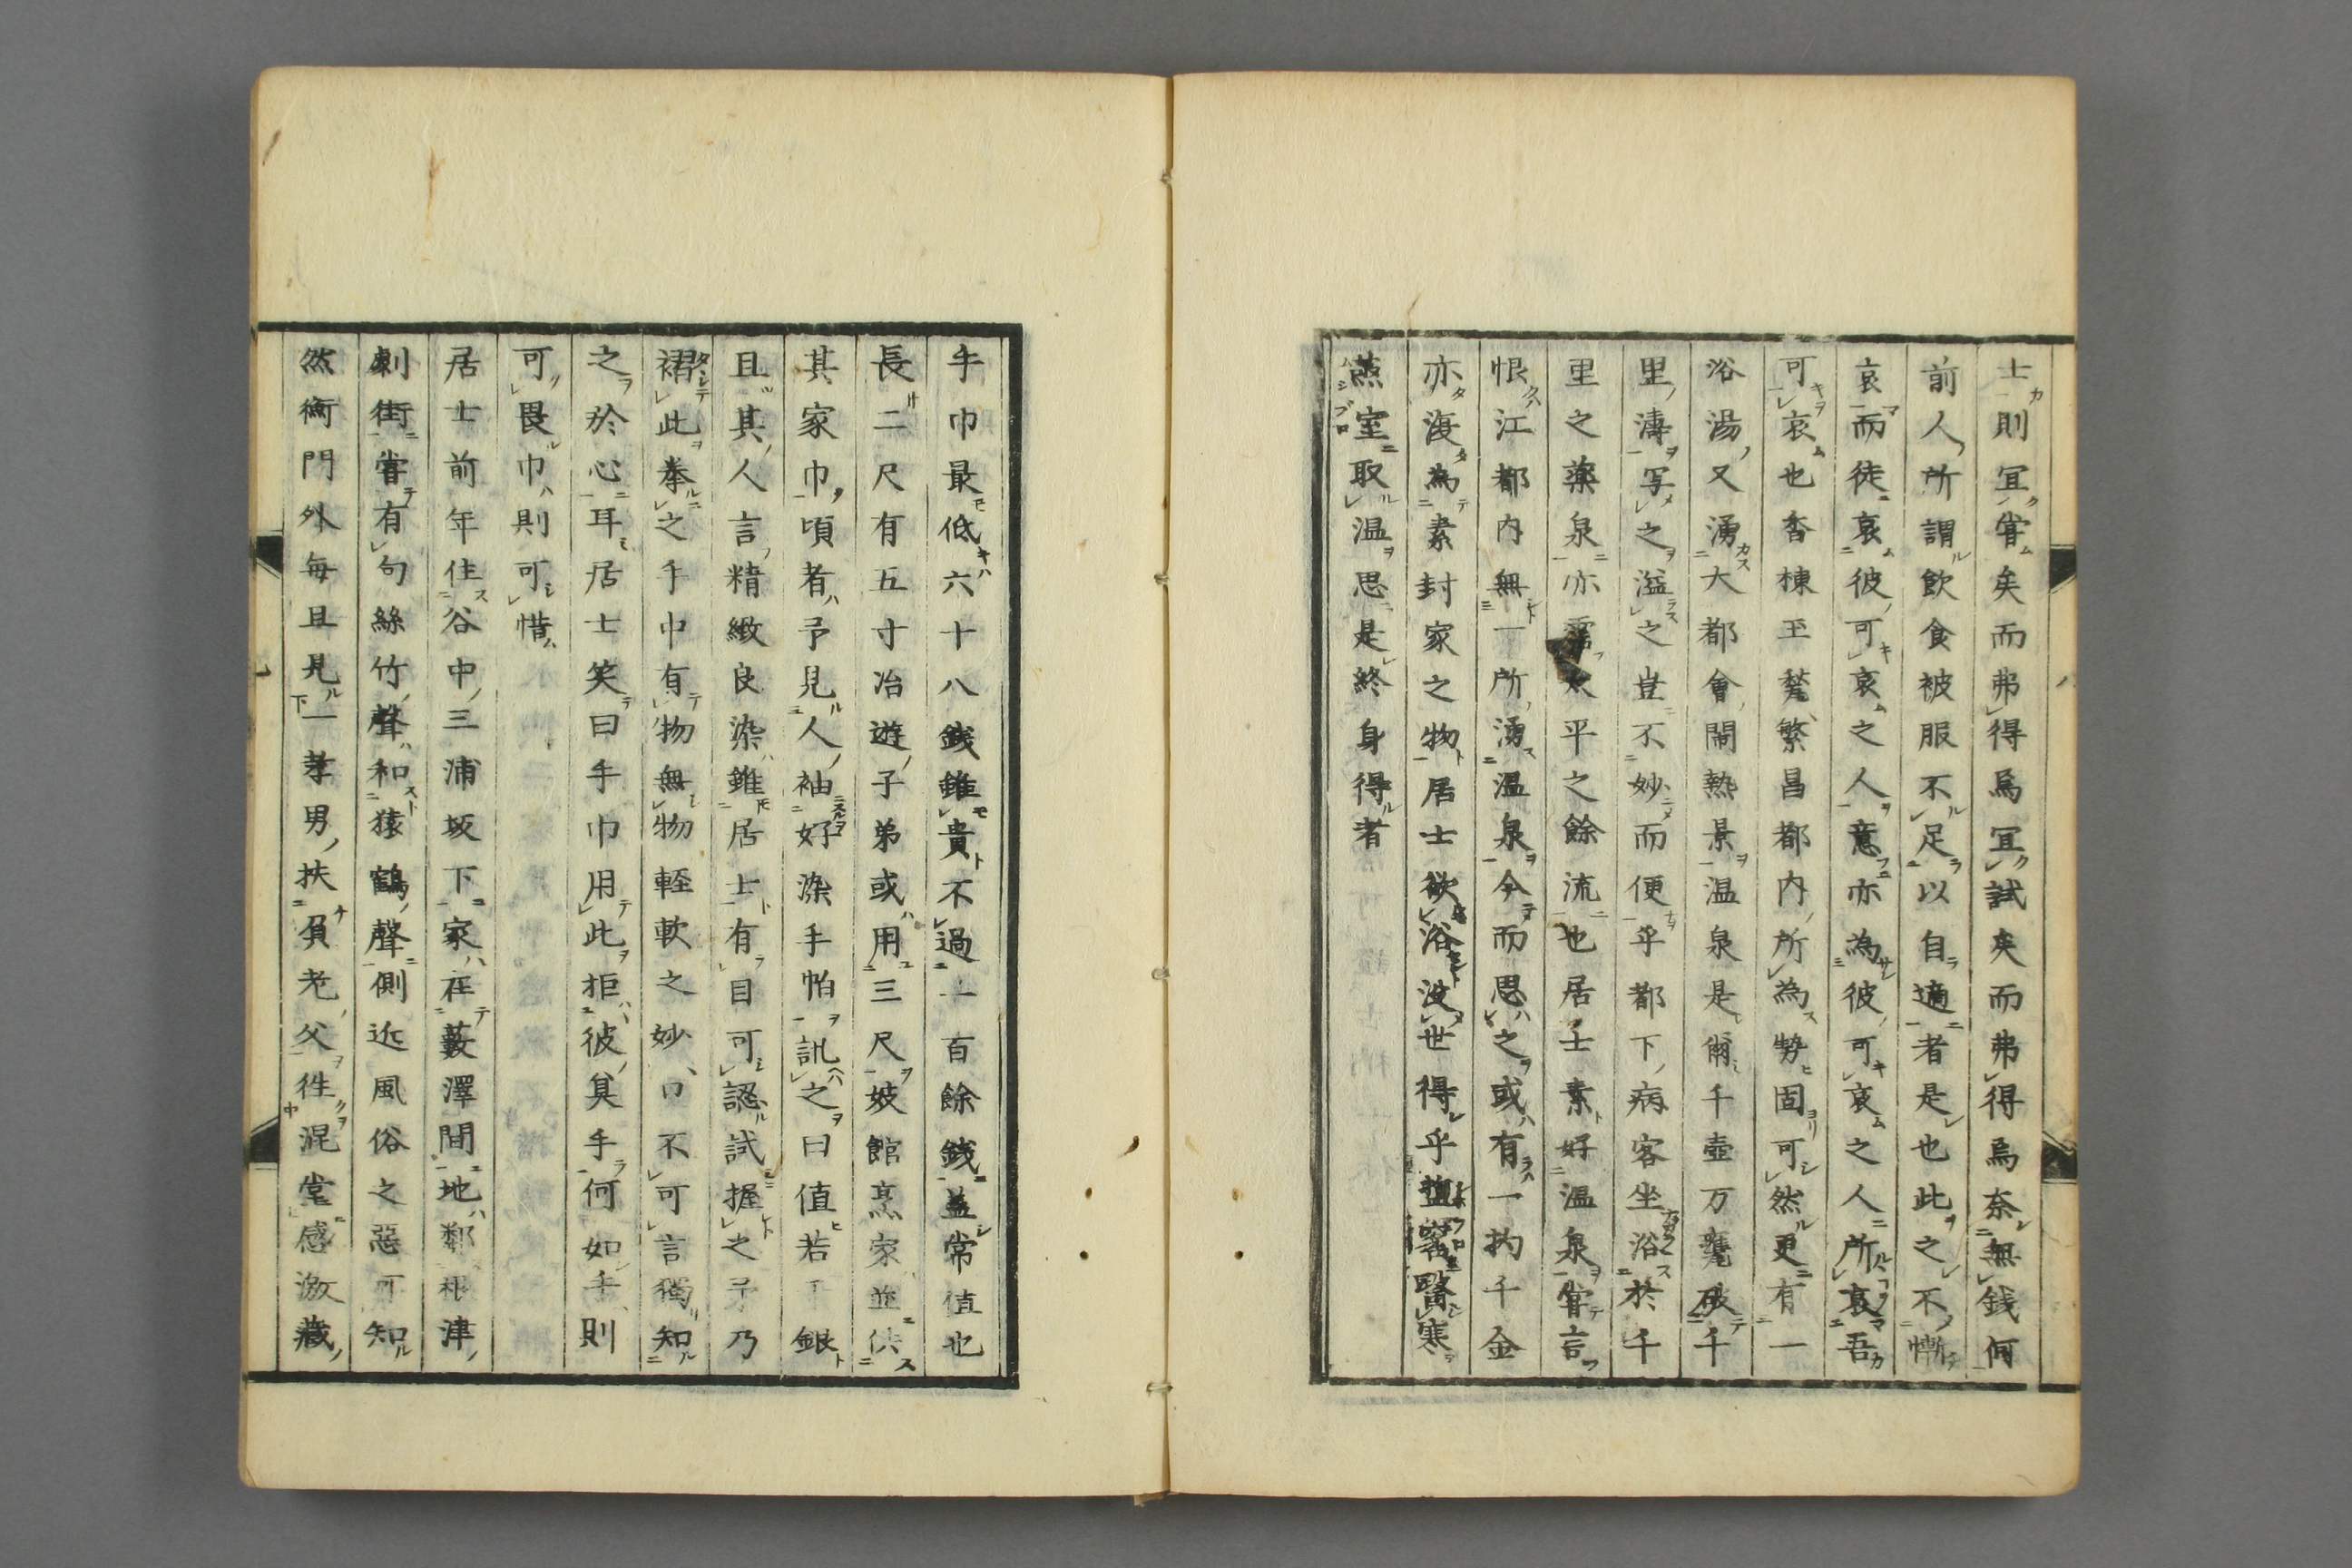 士則冝甞矣而弗得烏冝試矣而弗得烏奈無銭何
前人所謂飲食被服不足以自適者是也此之不慚
哀而徒哀彼可哀之人意亦為彼可哀之人所哀吾
可哀也杳棟玉甍繁昌都内所為勢固可然更有一
浴湯又湧大都會閙熱景温泉是爾千壺万甕破千
里濤写之溢之豈不妙而便乎都下病客坐浴於千
里之薬泉亦霑太平之餘流也居士素好温泉甞言
恨江都内無一所湧温泉今而思之或有一扚千金
亦復為素封家之物居士欲浴没世得乎塩窖醫寒
蒸室取温思是終身得者
手巾最低六十八銭雖貴不過一百餘銭盖常值也
長二尺有五寸冶遊子弟或用三尺妓館烹家並供
其家巾頃者予見人袖好染手帕訊之曰值若干銀
且其人言精緻良染雖居士有目可認試握之予乃
褶此拳之手巾有物無物輕軟之妙口不可言獨知
之於心耳居士笑曰手巾用此拒彼其手何如手則
可畏巾則可惜
居士前年住谷中三浦坂下家在藪澤間地鄰根津
劇街甞有句絲竹聲和猿鶴聲側近風俗之惡可知
然衡門外毎旦見一孝男扶負老父徃混堂感激藏